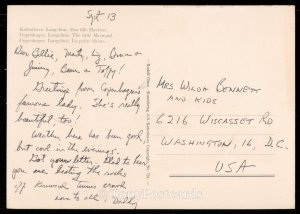 Sept 13
København Langelinie. Den lille Havfrue.
Copenhagen Langelinie. The little Mermaid.
Copenhagen Langelinie. La petite Sirène.
Dear Billie, Marty, Ly, Quinn &
Jimmy, Bann & Toffy!
Greetings from Copenhagen's
famous lady. She's really
beautiful, too!
Weather here has been good,
but cool in the evenings.
Got your letter. Glad to hear
you are beating the socks
off Kenwood Annies crowd
Love to all, Daddy
Mrs Wilda Bennett
and kids
6216 Wiscasset Rd
Washington, 16, D.C.
USA
Postcards